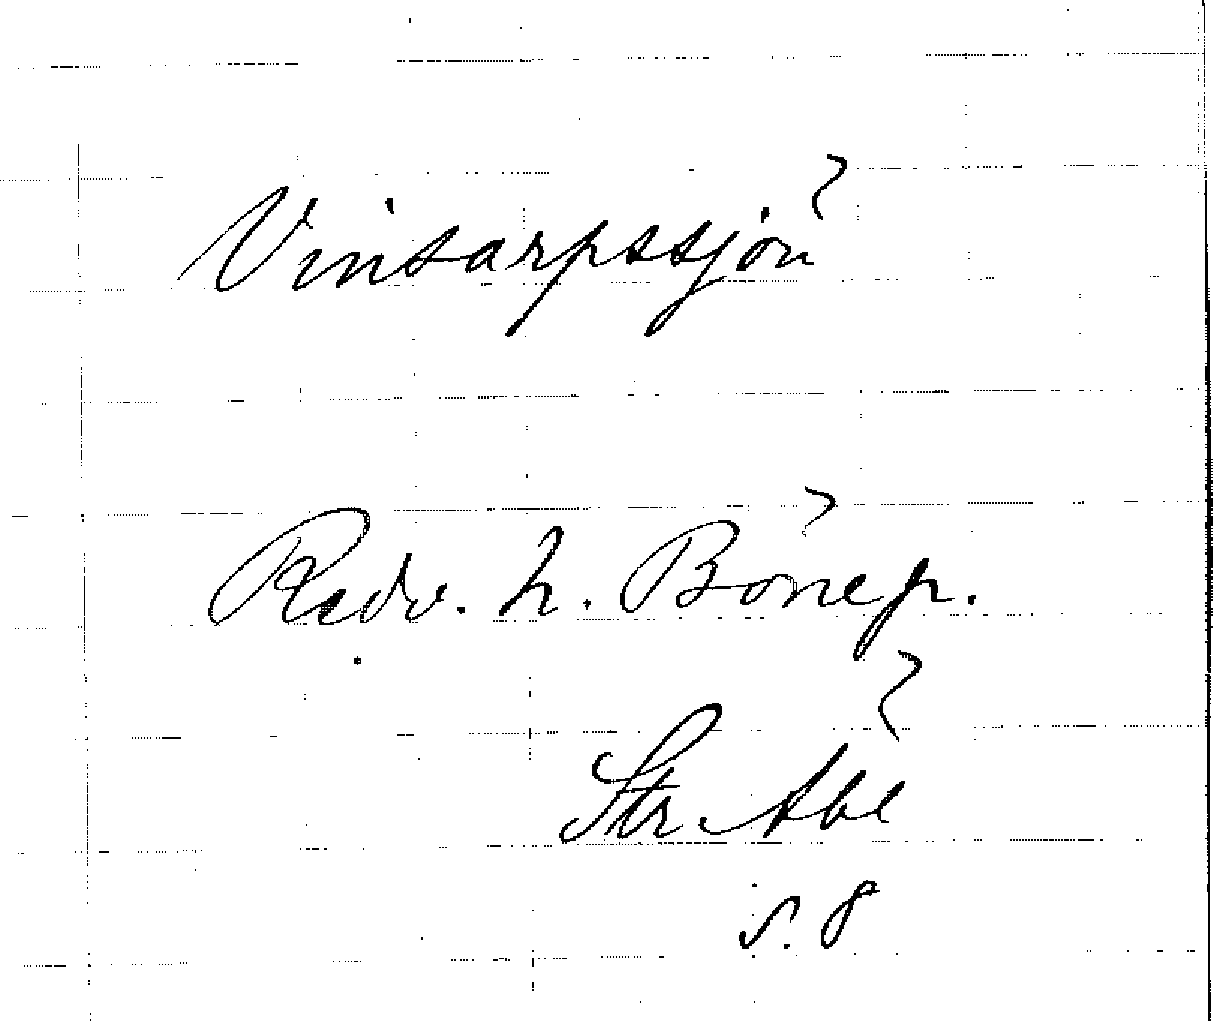 Vinsarpssjön
Redv. h. Böne p.
Str Abl
s. 8